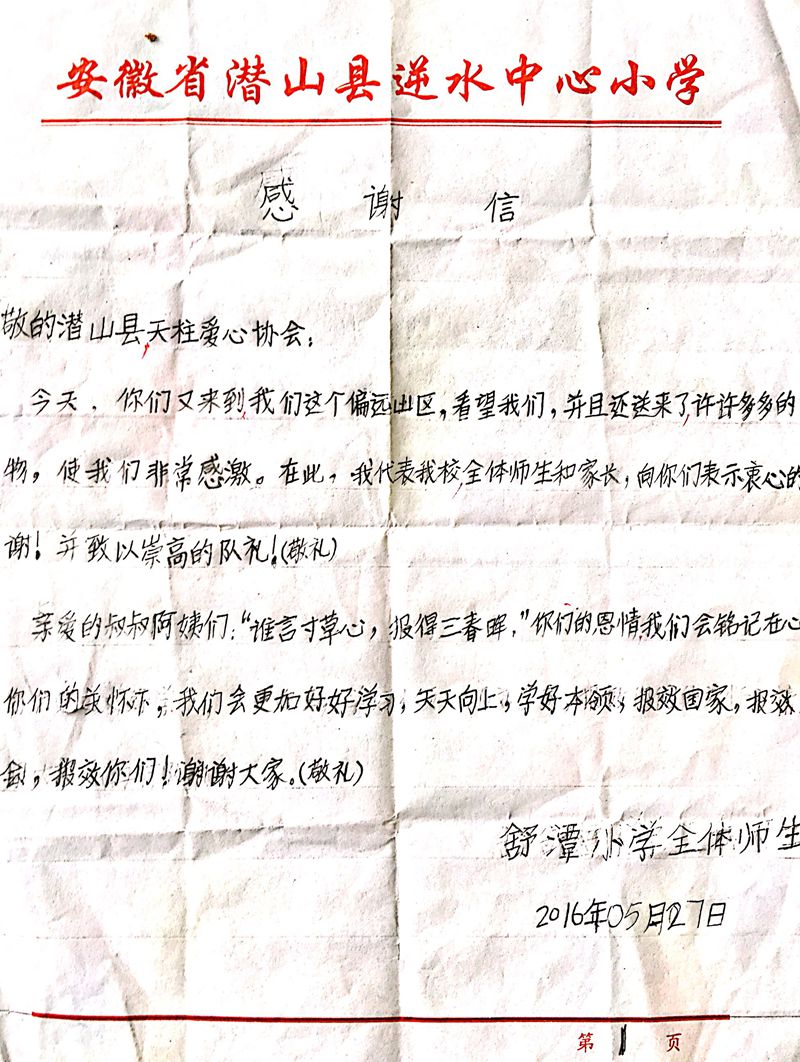 安徽省潜山县逆水中心小学
感谢信
敬的潜山县天柱爱心协会：
今天，你们又来到我们这个偏远山区，看望我们，并且还送来了许许多多的
物，使我们非常感激。在此，我代表我校全体师生和家长，向你们表示衷心的
谢！并致以崇高的队礼！（敬礼）
亲爱的叔叔阿姨们：“谁言寸草心，报得三春晖，”你们的恩情我们会铭记在心
你们的关怀下，我们会更加好好学习，天天向上，学好本领，报效国家，报效
会，报效你们！谢谢大家。（敬礼）
舒潭小学全体师生
2016年05月27日
第1页